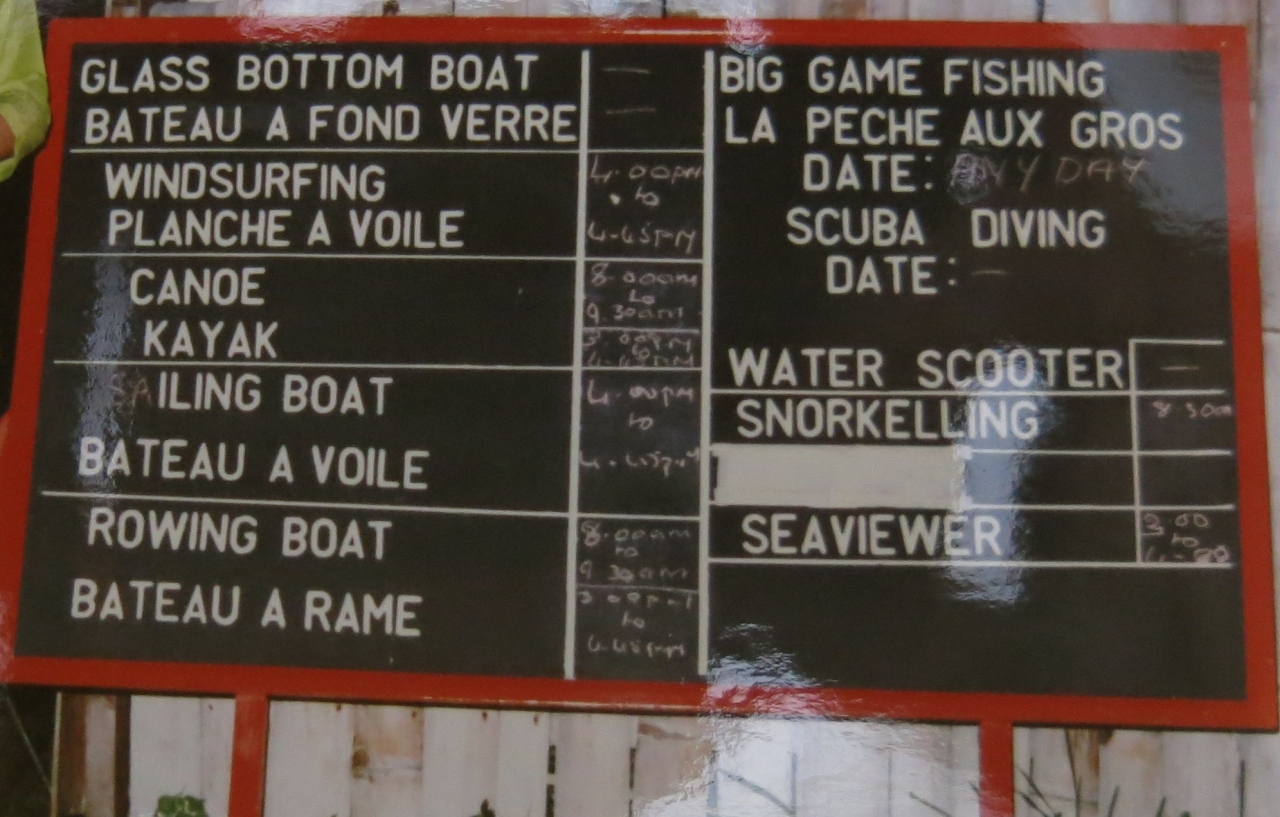 GLASS BOTTOM BOAT —
BATEAU A FOND VERRE —
WINDSURFING 4.00pm
to
PLANCHE A VOILE 4.45PM
CANOE 8.00am
to
9.30am
KAYAK 3.00PM
4.45PM
SAILING BOAT 4.00PM
to
BATEAU A VOILE 4.45pm
ROWING BOAT 8.00am
to
9.30am
BATEAU A RAME 3.00pm
to
4.45pm
BIG GAME FISHING
LA PECHE AUX GROS
DATE: ANY DAY
SCUBA DIVING
DATE: —
WATER SCOOTER —
SNORKELLING 8.30am
SEAVIEWER 3.00
to